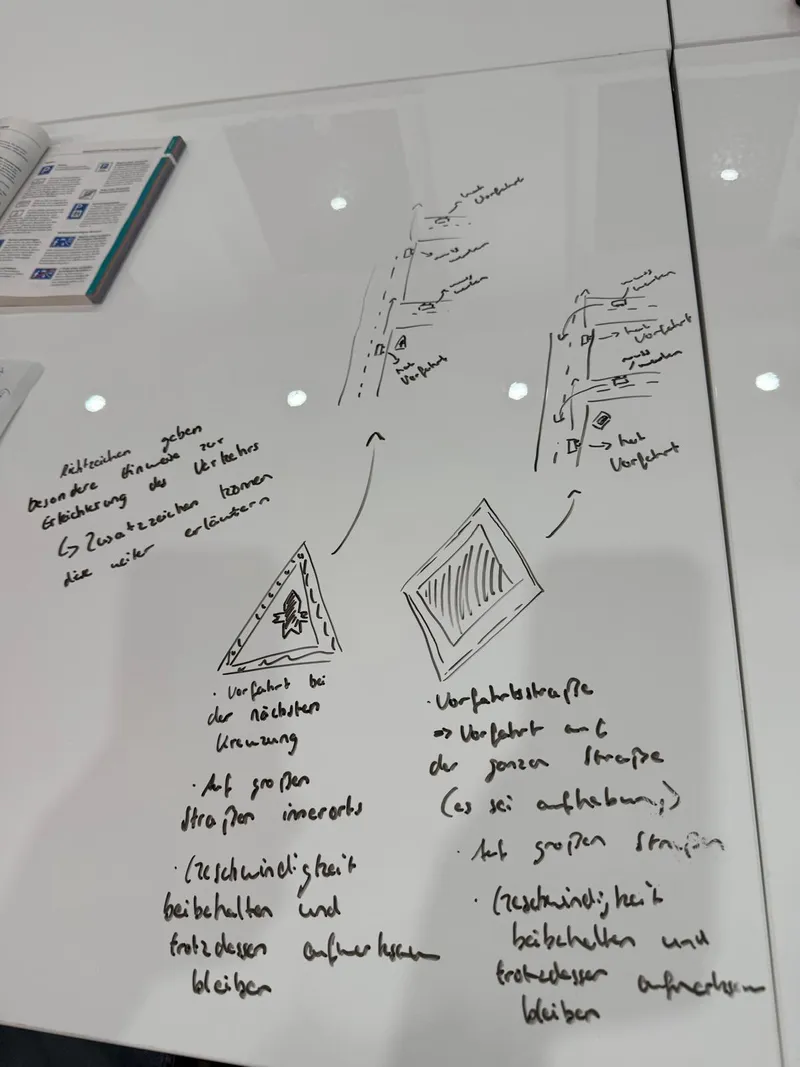 hat
Vorfahrt
muss
warten
muss
warten
hat
Vorfahrt
muss
warten
hat
Vorfahrt
muss
warten
hat
Vorfahrt
Richtzeichen geben
besondere Hinweise zur
Erleichterung des Verkehrs
↳ Zusatzzeichen können
diese weiter erläutern
· Vorfahrt bei
der nächsten
Kreuzung
· Auf großen
Straßen innerorts
· Geschwindigkeit
beibehalten und
trotzdessen aufmerksam
bleiben
· Vorfahrtsstraße
⇒ Vorfahrt auf
der ganzen Straße
(es sei aufhebung;)
· Auf großen Straßen
· Geschwindigkeit
beibehalten und
trotzdessen aufmerksam
bleiben